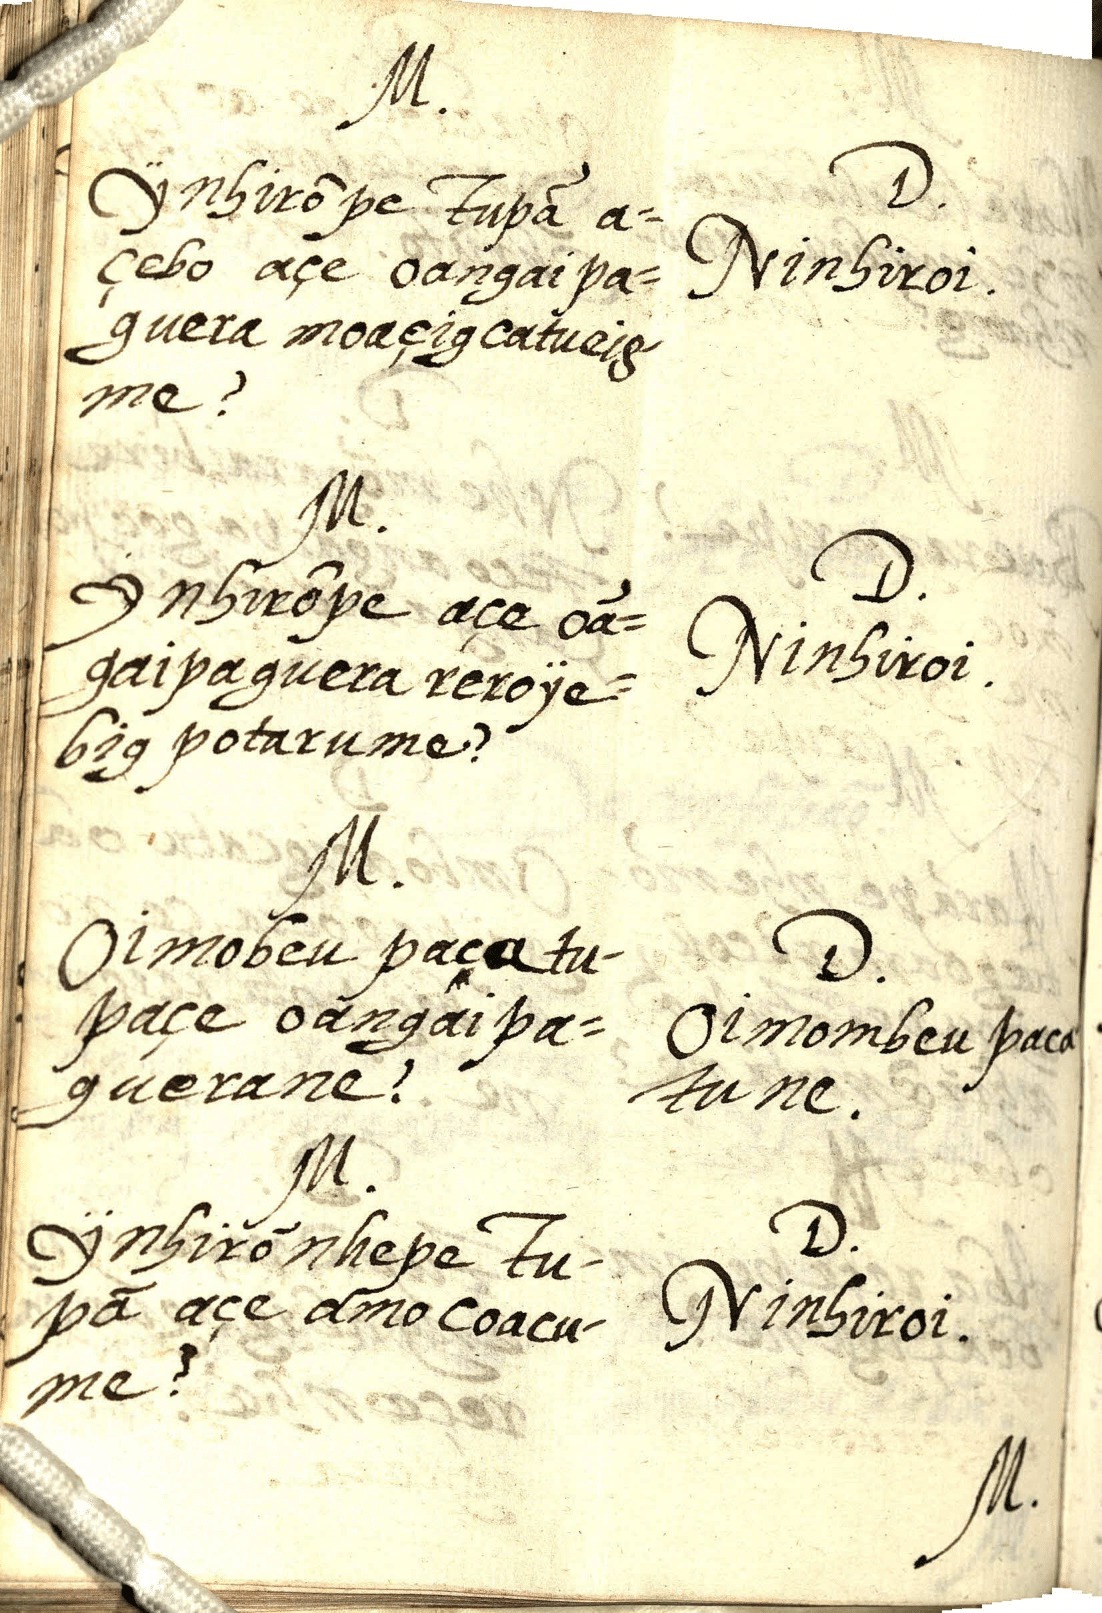 M.
Ÿnhirõpe Tupã a=
çebo açe oangaipa=
guera moaçigcatueig
me?
D.
Ninhiroi.
M.
Ynhirõpe açe oã=
gaipaguera reroÿe=
big potarume?
D.
Ninhiroi.
M.
Oimobeu paçatu-
paçe oangaipa=
guerane?
D.
Oimombeu paca
tu ne.
M.
Ÿnhirõnhepe Tu-
pã açe amo coacu-
me?
D.
Ninhiroi.
M.